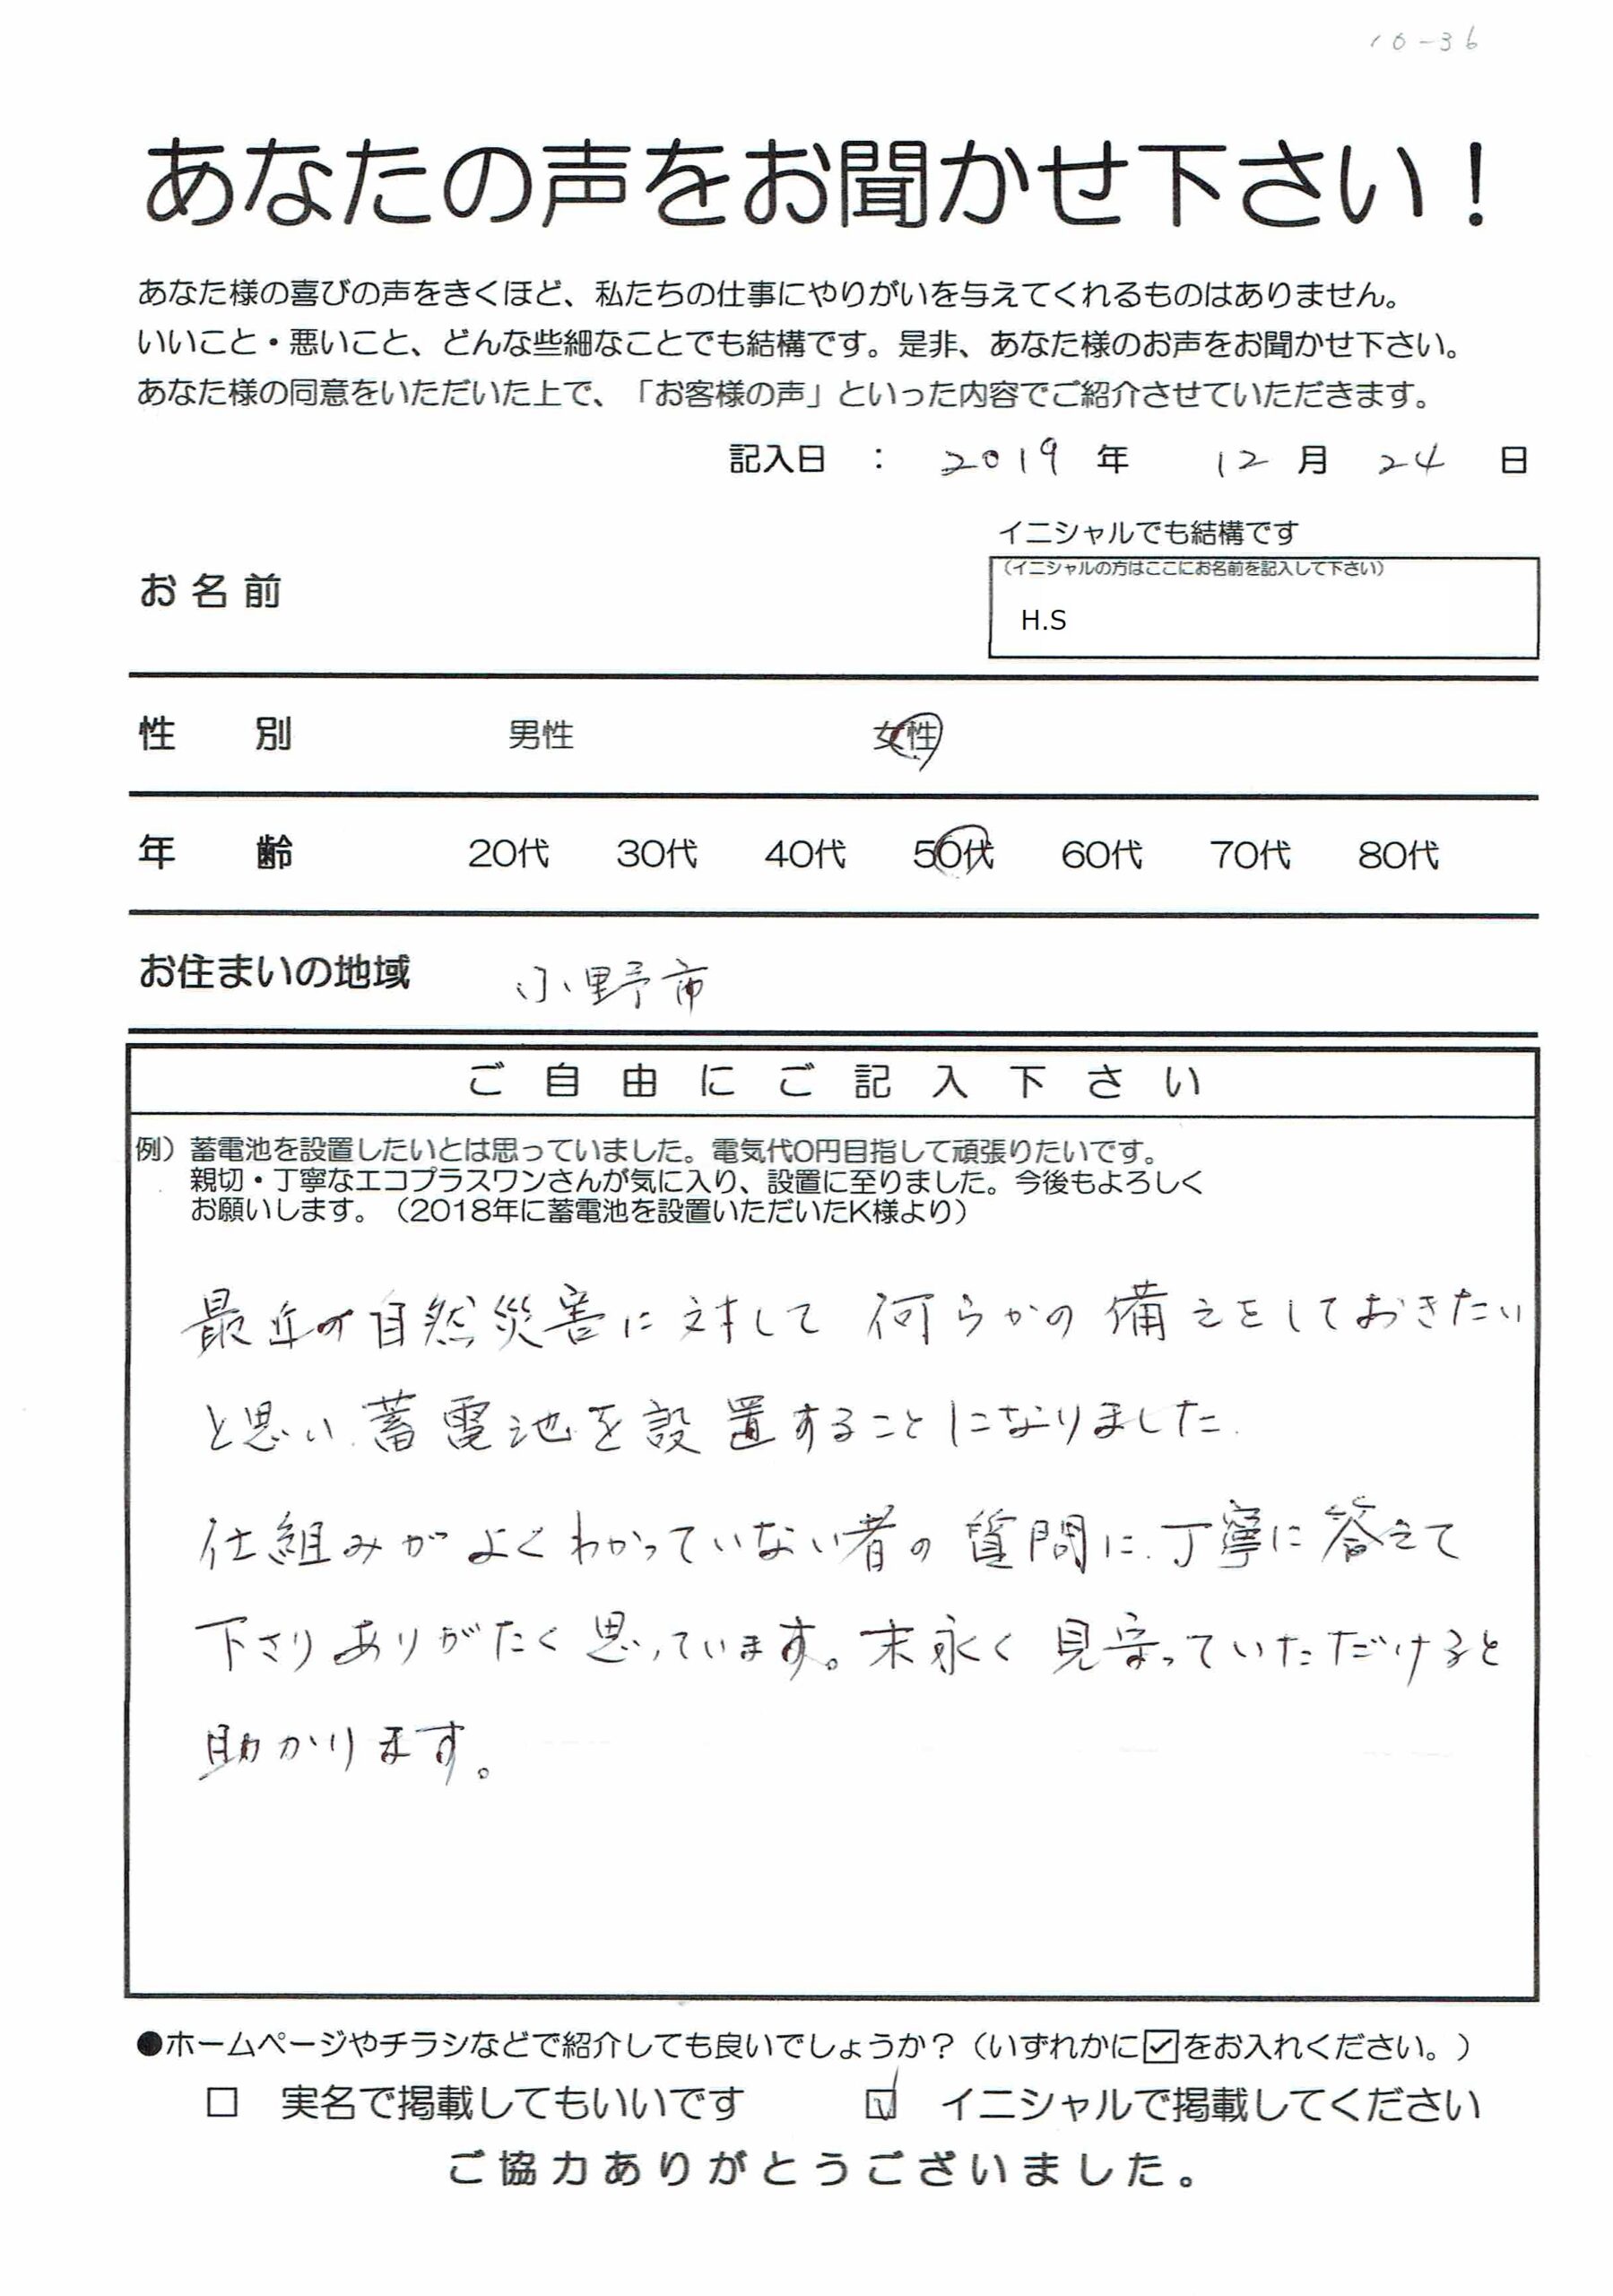 10-36
あなたの声をお聞かせ下さい！
あなた様の喜びの声をきくほど、私たちの仕事にやりがいを与えてくれるものはありません。
いいこと・悪いこと、どんな些細なことでも結構です。是非、あなた様のお声をお聞かせ下さい。
あなた様の同意をいただいた上で、「お客様の声」といった内容でご紹介させていただきます。
記入日 ： 2019 年 12 月 24 日
イニシャルでも結構です
（イニシャルの方はここにお名前を記入して下さい）
お名前
H.S
性 別 男性 女性
年 齢 20代 30代 40代 50代 60代 70代 80代
お住まいの地域 小野市
ご自由にご記入下さい
例）蓄電池を設置したいとは思っていました。電気代0円目指して頑張りたいです。
親切・丁寧なエコプラスワンさんが気に入り、設置に至りました。今後もよろしく
お願いします。（2018年に蓄電池を設置いただいたK様より）
最近の自然災害に対して何らかの備えをしておきたい
と思い、蓄電池を設置することになりました。
仕組みがよくわかっていない者の質問に、丁寧に答えて
下さりありがたく思っています。末永く見守っていただけると
助かります。
●ホームページやチラシなどで紹介しても良いでしょうか？（いずれかに☑をお入れください。）
□ 実名で掲載してもいいです ☑ イニシャルで掲載してください
ご協力ありがとうございました。